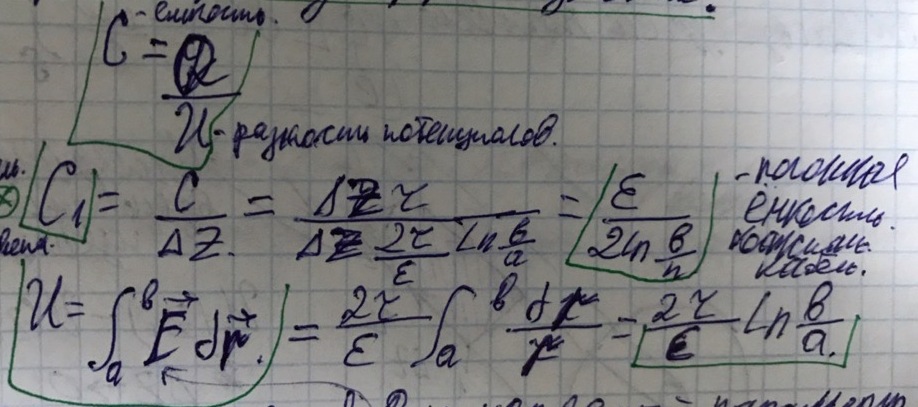 C - ёмкость.
C = Q / U - разность потенциалов.
C₁ = C / ΔZ. = ΔZ τ / (ΔZ (2τ / ε) Ln (в / a)) = ε / (2 ln (в / п)) - погонная
ёмкость
коаксиаль.
кабель.
U = ∫ₐᵇ E⃗ dr⃗. = (2τ / ε) ∫ₐᵇ dr / r = (2τ / ε) Ln (в / a.)